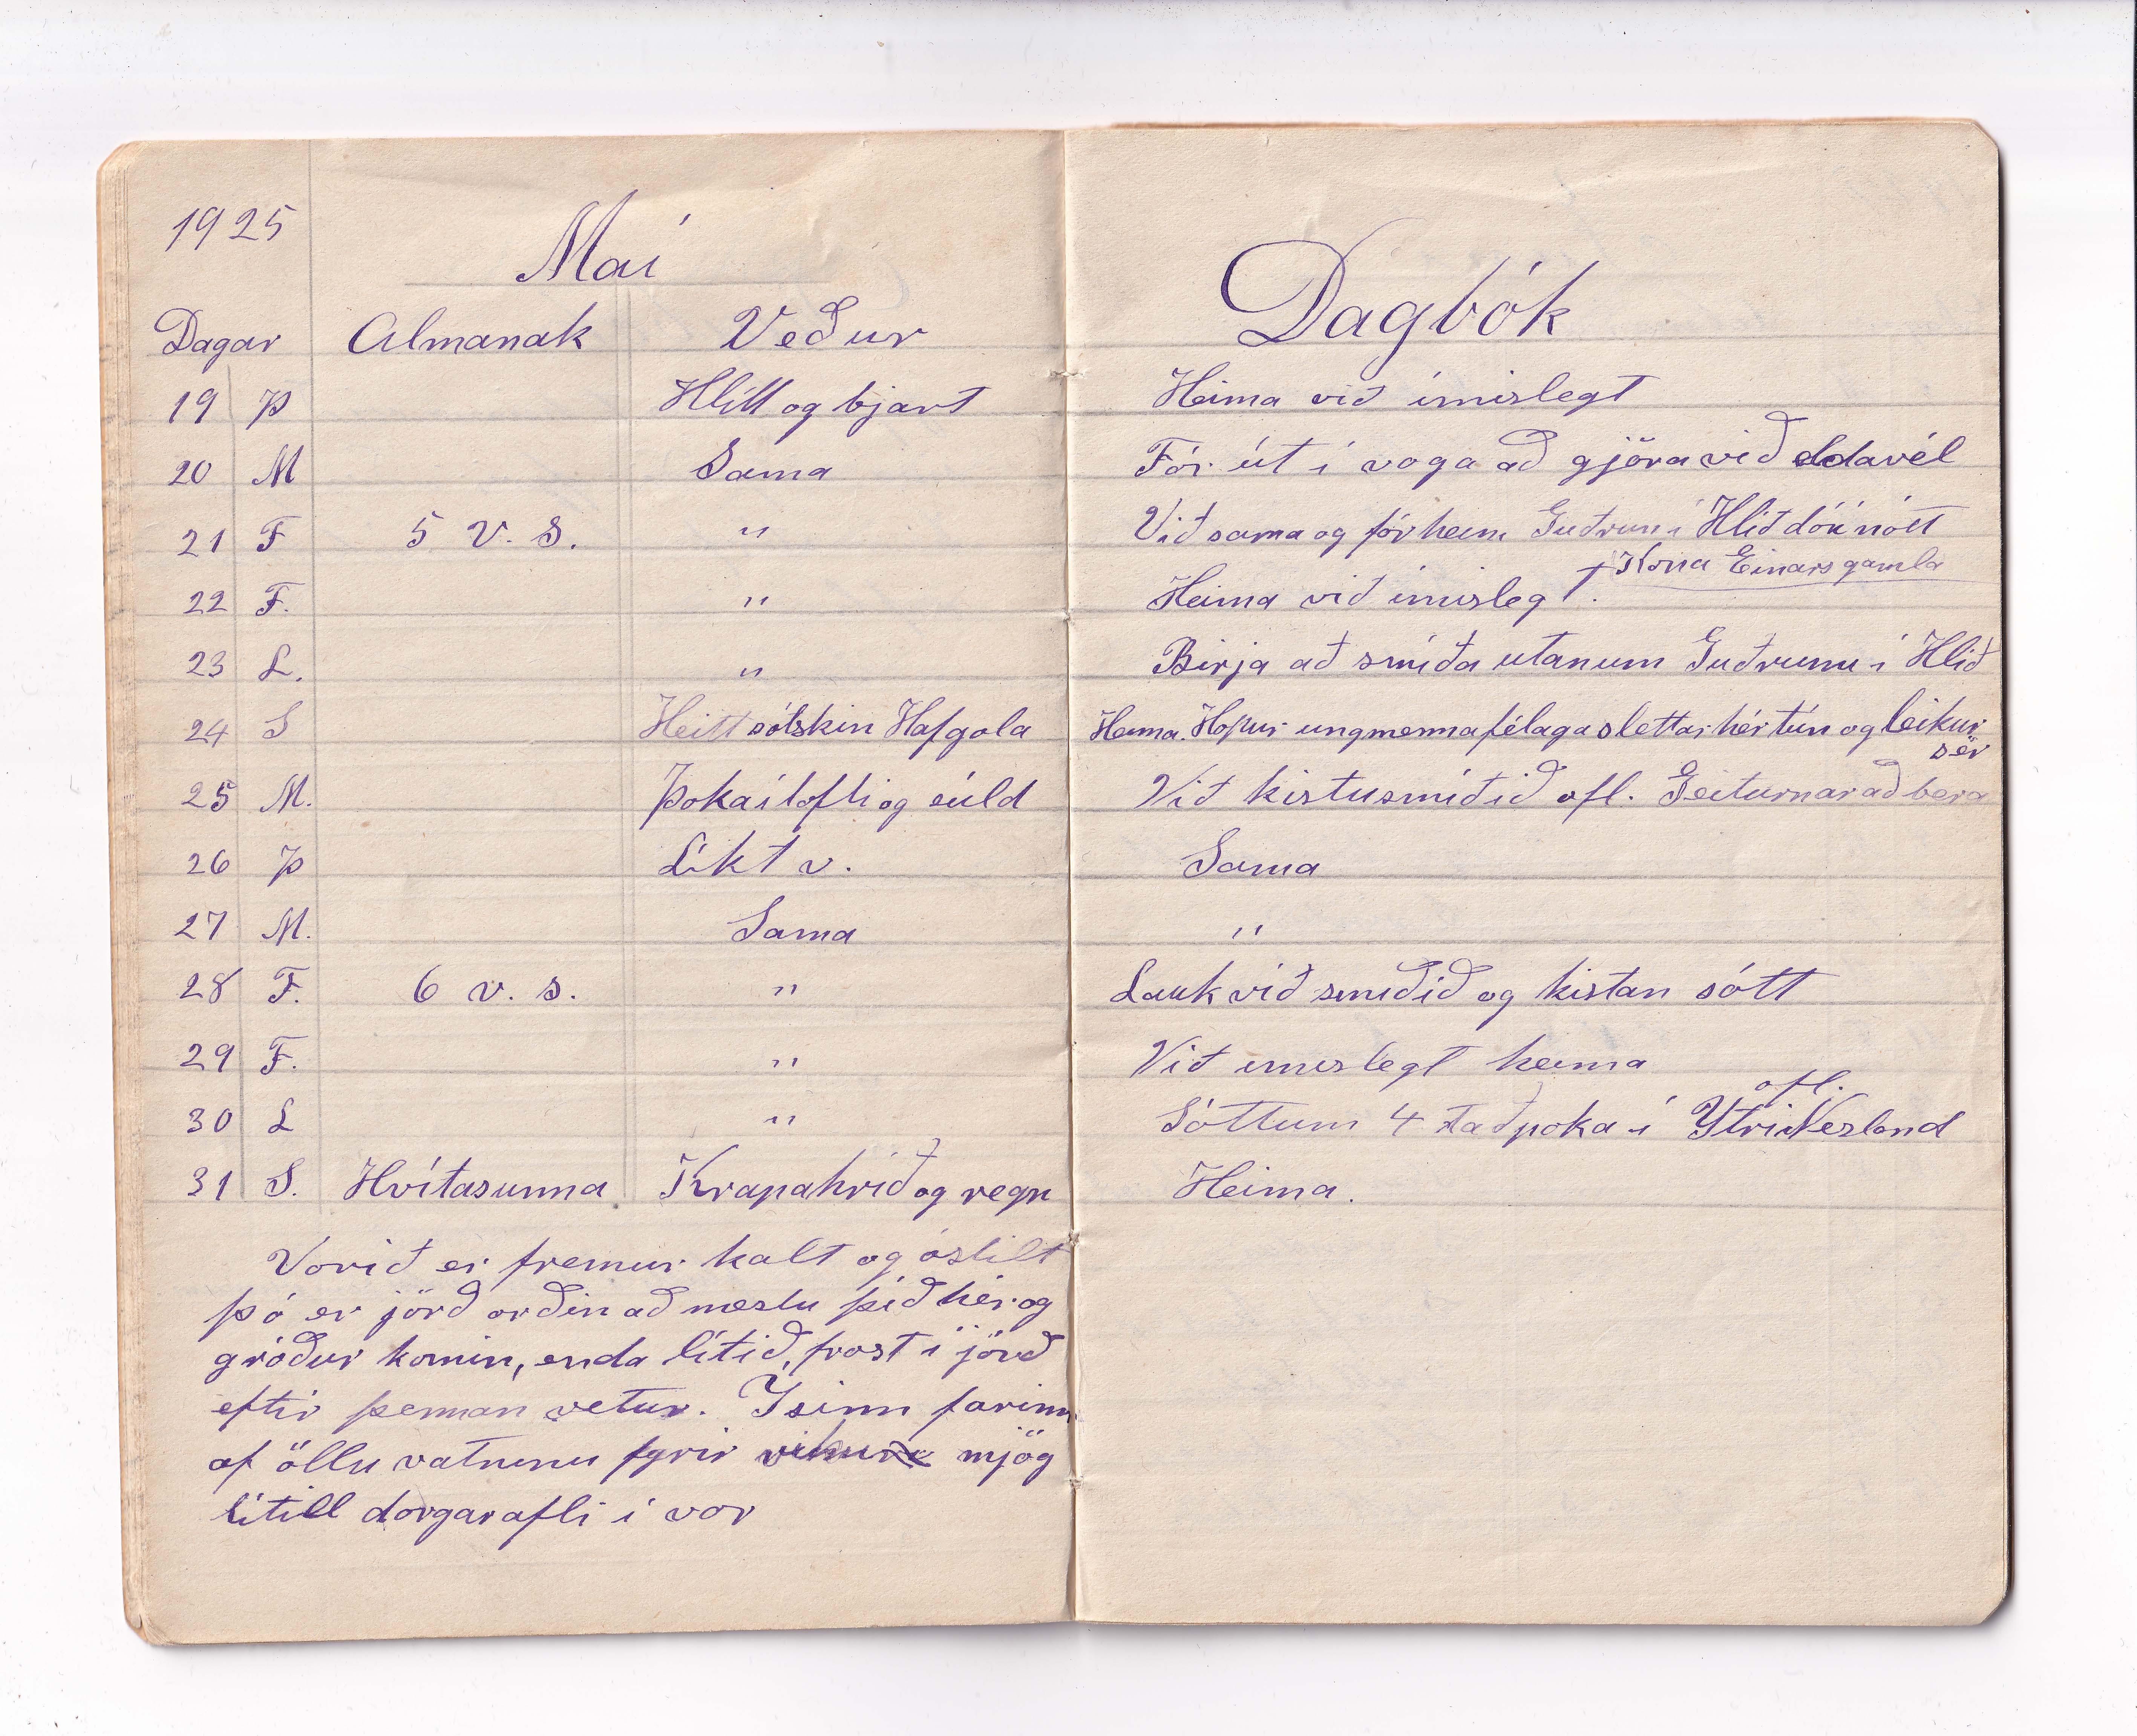 1925
Maí
Dagar Almanak Veður
19 Þ Hlítt og bjart
20 M Sama
21 F 5 V. S. "
22 F. "
23 L. "
24 S Heitt sólskin Hafgola
25 M. Þoka í lofti og
26 Þ Líkt v.
27 M. Sama
28 F. 6 v. s. "
29 F. "
30 L "
31 S. Hvítasunna Krapahríð og regn
Vorið er fremur kalt og óstilt
þó er jörð orðin að mestu þíð hér og
gróður komin, enda lítið frost í jörð
eftir þennan vetur. Ísinn farinn
af öllu vatnunu fyrir mjög
lítill dorgarafli í vor
Dagbók
Heima við ímislegt
Fór út í voga að gjöra við eldavél
Við sama og fór heim Guðrun í Hlíð dó í nótt
Kona Einars gamla
Heima við ímislegt.
Birja að smíða utanum Guðrunu í Hlíð
Heima. Hópur ungmennafélaga slettar hér tún og leikur
sér
Við kistusmíðið ofl. Geiturnar að bera
Sama
"
Lauk við smíðið og kistan sótt
Við ímislegt heima
ofl.
Sóttum 4 taðpoka í Ytri Nesland
Heima.